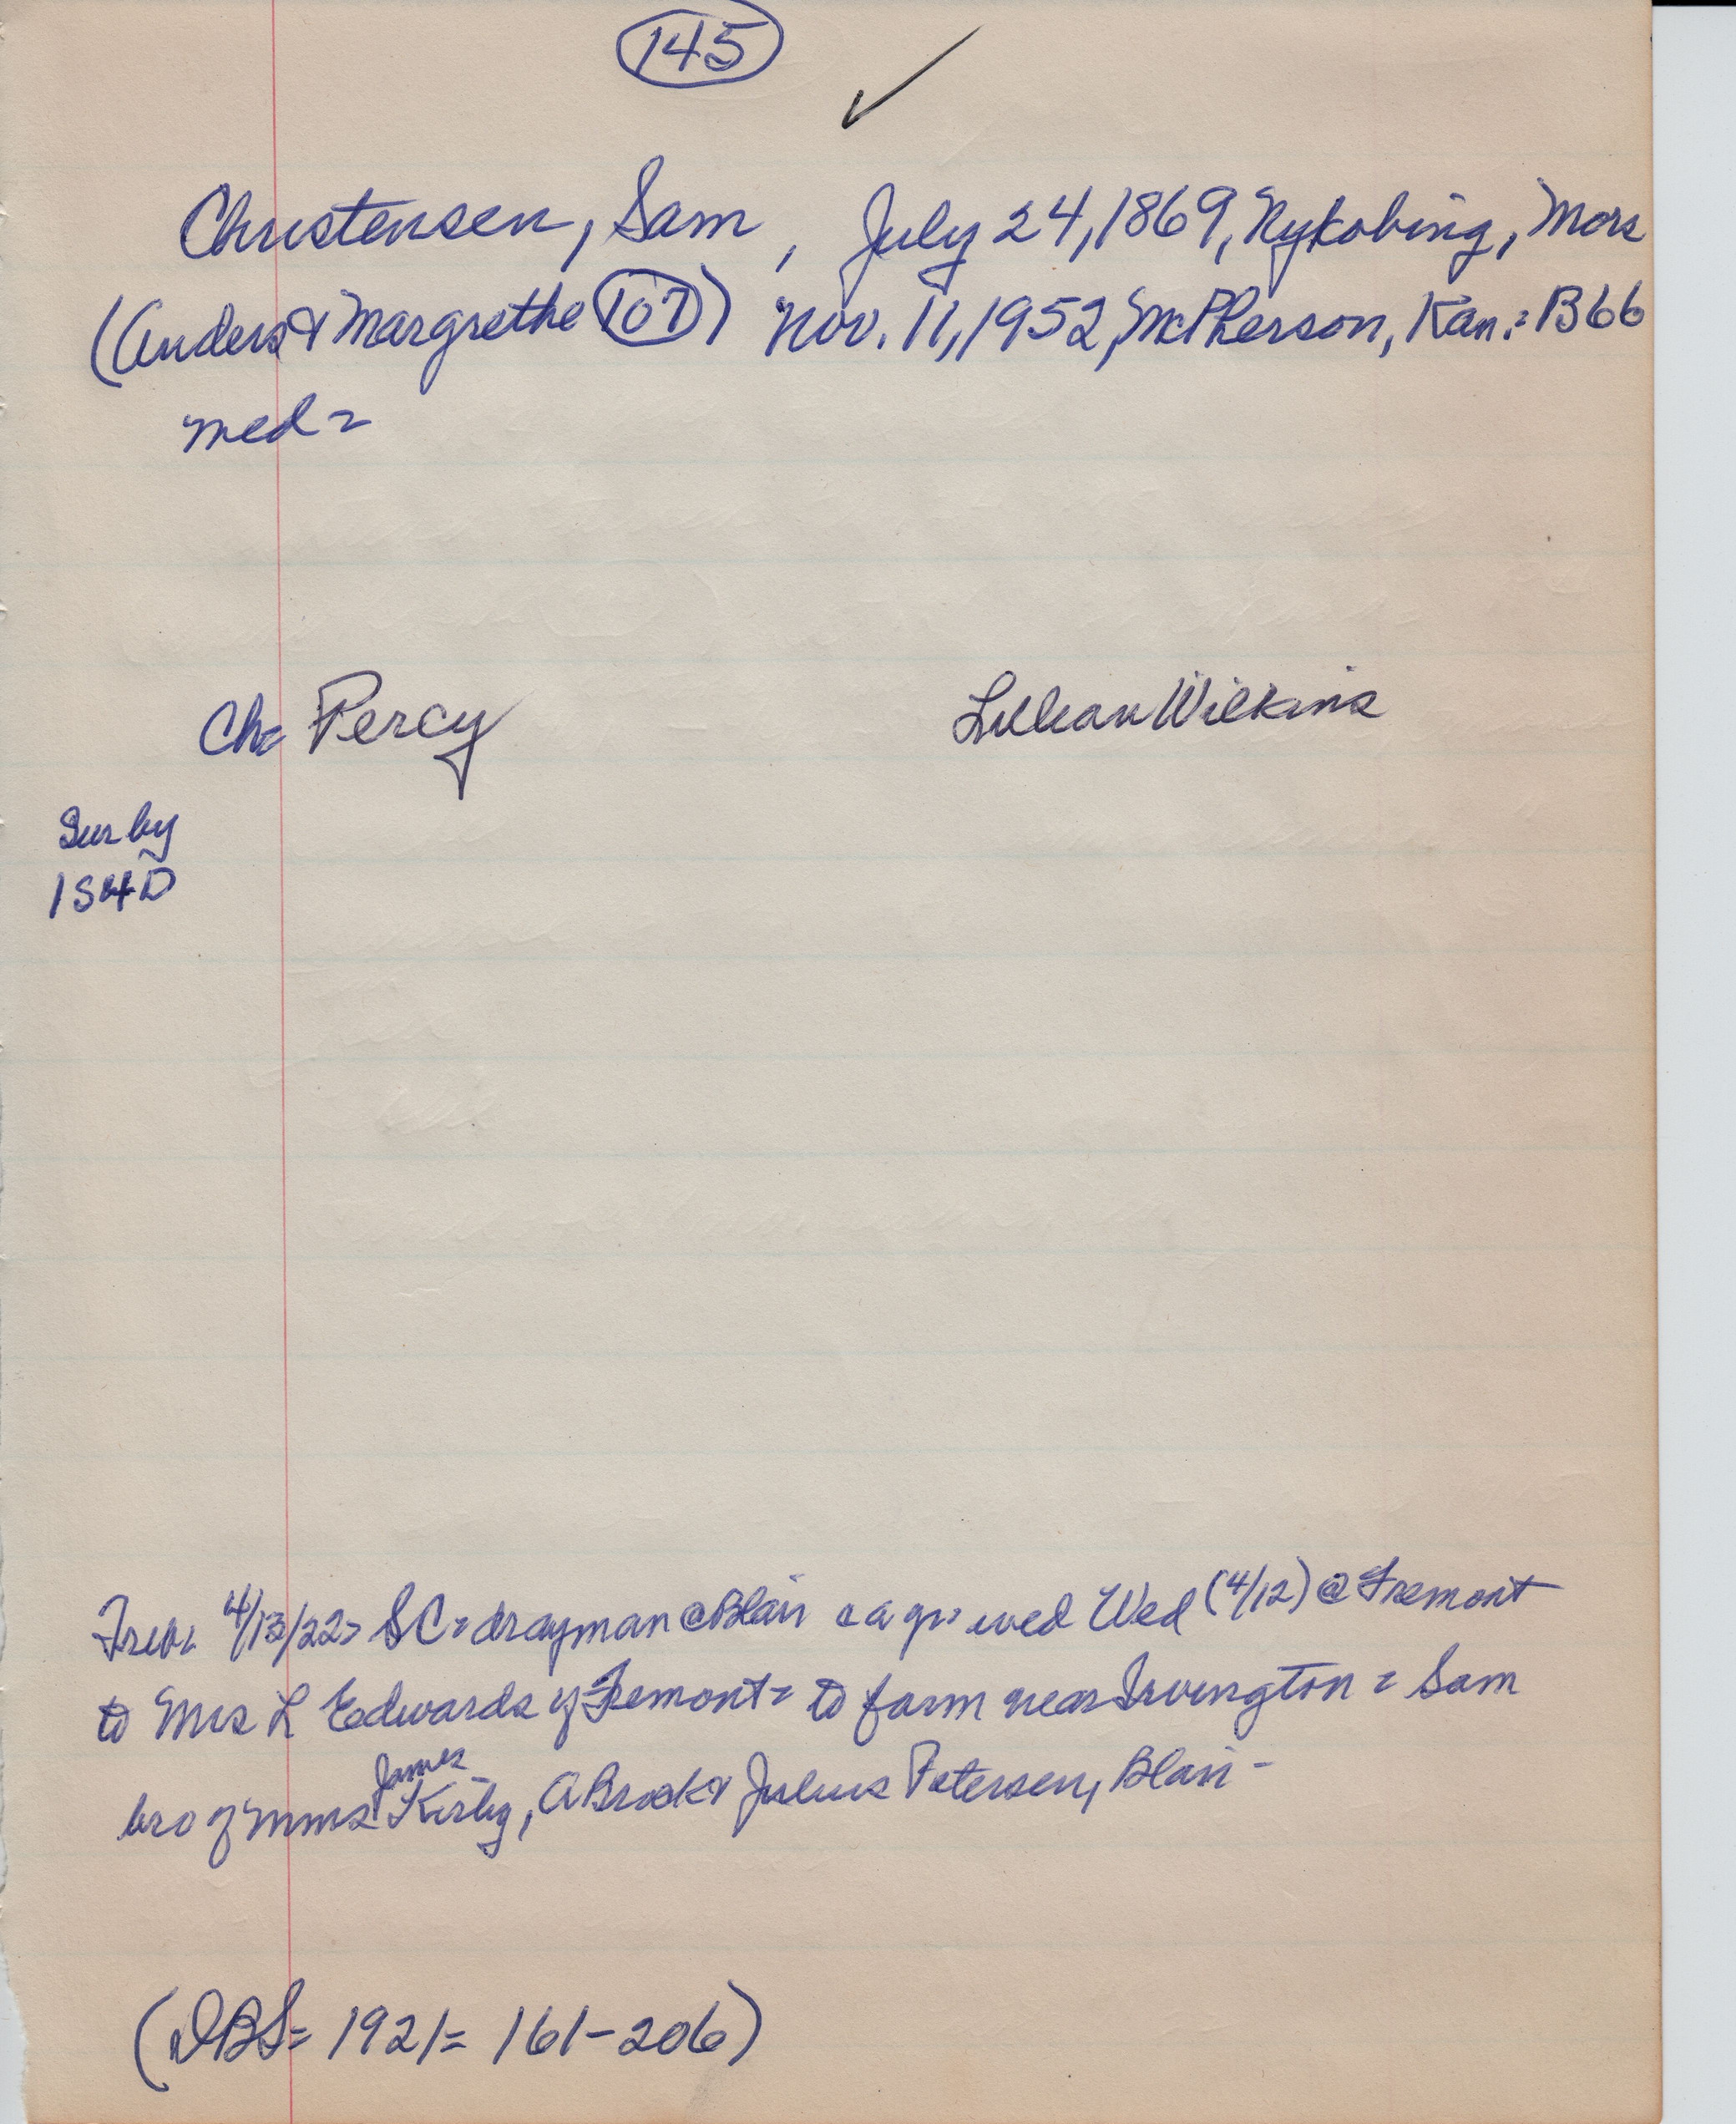 145
Christensen, Sam, July 24, 1869, Nykobing, Mors
(Anders & Margrethe 107) Nov. 11, 1952, McPherson, Kan.= B66
med=
Ch= Percy Lillian Wilkins
Sur by
1S4D
4/13/22= SC= drayman @ Blair Wed (4/12) @ Fremont
to Mrs L Edwards of Fremont= to farm near Irvington = Sam
James
bro of Mmes Kirby, A Brock & Julius Petersen, Blair-
(DBS= 1921= 161-206)